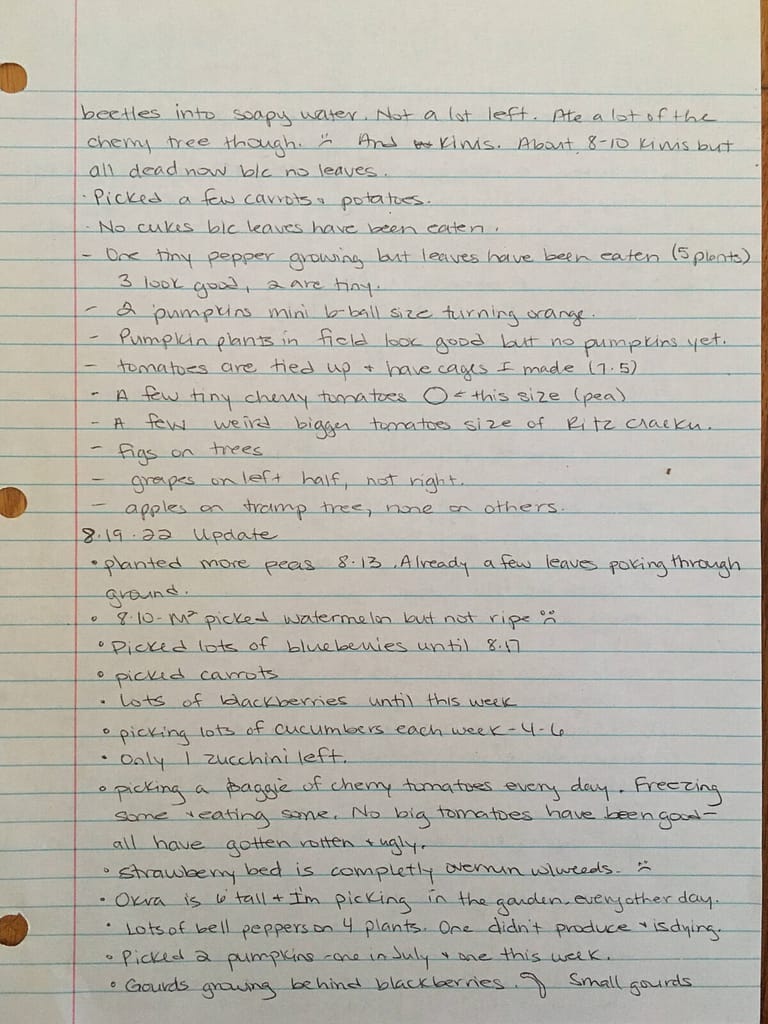 beetles into soapy water. Not a lot left. Ate a lot of the
cherry tree though. :( And kiwis. About 8-10 kiwis but
all dead now b/c no leaves.
· Picked a few carrots & potatoes.
· No cukes b/c leaves have been eaten.
- One tiny pepper growing but leaves have been eaten (5 plants)
3 look good, 2 are tiny.
- 2 pumpkins mini b-ball size turning orange.
- Pumpkin plants in field look good but no pumpkins yet.
- tomatoes are tied up + have cages I made (7.5)
- A few tiny cherry tomatoes O ← this size (pea)
- A few weird bigger tomatoes size of Ritz cracker.
- figs on trees
- grapes on left half, not right.
- apples on tramp tree, none on others.
8.19.22 Update
• planted more peas 8.13. Already a few leaves poking through
ground.
• 8.10 - M² picked watermelon but not ripe :(
• Picked lots of blueberries until 8.17
• picked carrots
• Lots of blackberries until this week
• picking lots of cucumbers each week - 4-6
• Only 1 zucchini left.
• picking a baggie of cherry tomatoes every day. Freezing
some + eating some. No big tomatoes have been good-
all have gotten rotten + ugly.
• Strawberry bed is completly overrun w/weeds. :(
• Okra is 6' tall + I'm picking in the garden every other day.
• Lots of bell peppers on 4 plants. One didn't produce + is dying.
• Picked 2 pumpkins - one in July + one this week.
• Gourds growing behind blackberries. Small gourds